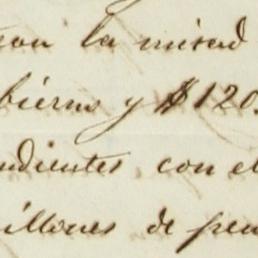 con la mitad
bierno y $120
ndientes con el
illones de pe